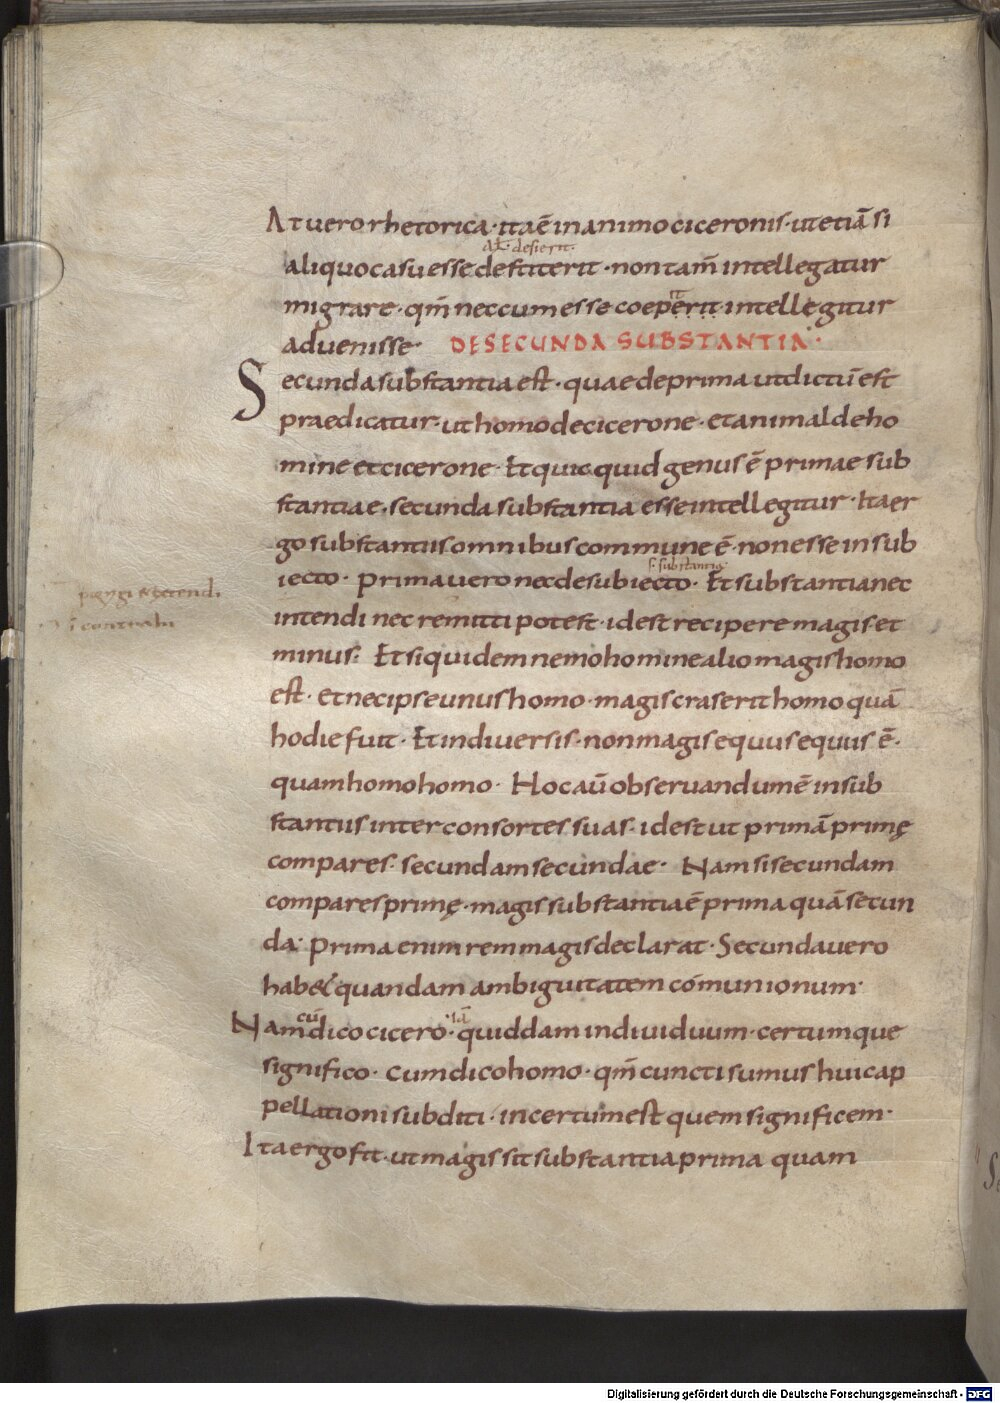 At uero rhetorica · ita ē in animo ciceronis · ut etiā si
al desierit ·
aliquo casu esse destiterit · non tam̄ intellegatur
migrare · qm̄ nec cum esse coeperit · intellegitur
aduenisse · DE SECUNDA SUBSTANTIA ·
Secunda substantia est · quae de prima ut dictū est
praedicatur · ut homo de cicerone · et animal de ho
mine et cicerone · Et quic quid genus ē primae sub
stantiae · secunda substantia esse intellegitur · Ita er
go substantiis omnibus commune ē · non esse in sub
s · substantia ·
iecto · Prima uero nec de subiecto · Et substantia nec
intendi nec remitti potest · id est recipere magis et
minus · Et siquidem nemo homine alio magis homo
est · et nec ipse unus homo · magis cras erit homo quā
hodie fuit · Et in diuersis · non magis equus equus ē ·
quam homo homo · Hoc aū obseruandum ē in sub
stantiis inter consortes suas · id est ut primā primę
compares · secundam secundae · Nam si secundam
compares primę · magis substantia ē prima quā secun
da · Prima enim rem magis declarat · Secunda uero
habet quandam ambiguitatem cōmunionum ·
cū iā
Nam dico cicero · quiddam indiuiduum · certumque
significo · Cum dico homo · qm̄ cuncti sumus huic ap
pellationi subditi · incertum est quem significem ·
Ita ergo fit · ut magis sit substantia prima quam
Digitalisierung gefördert durch die Deutsche Forschungsgemeinschaft - DFG